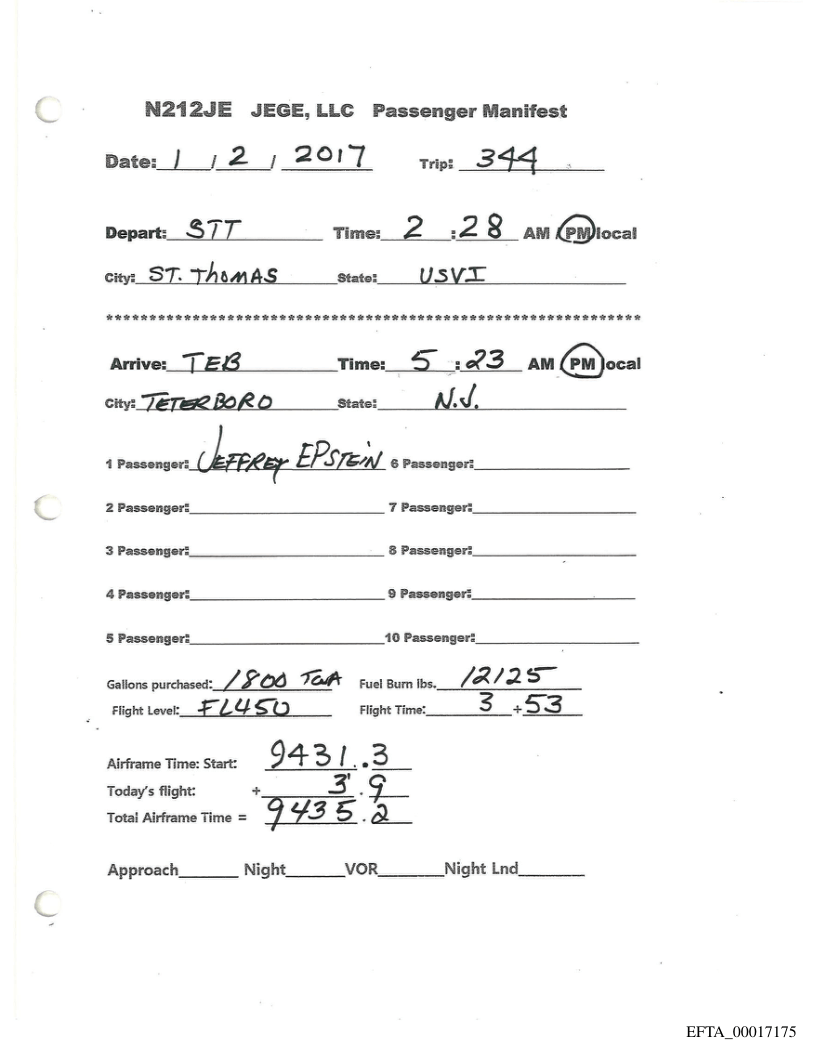 N212JE JEGE, LLC Passenger Manifest
Date: 1 / 2 / 2017 Trip: 344
Depart: STT Time: 2 : 28 AM / PM local
City: ST. ThOMAS State: USVI
**************************************************************
Arrive: TEB Time: 5 : 23 AM / PM local
City: TETERBORO State: N.J.
1 Passenger: JEFFREY EPSTEIN 6 Passenger:
2 Passenger: 7 Passenger:
3 Passenger: 8 Passenger:
4 Passenger: 9 Passenger:
5 Passenger: 10 Passenger:
Gallons purchased: 1800 Fuel Burn lbs. 12125
Flight Level: FL450 Flight Time: 3 + 53
Airframe Time: Start: 9431.3
Today's flight: + 3.9
Total Airframe Time = 9435.2
Approach Night VOR Night Lnd
EFTA_00017175